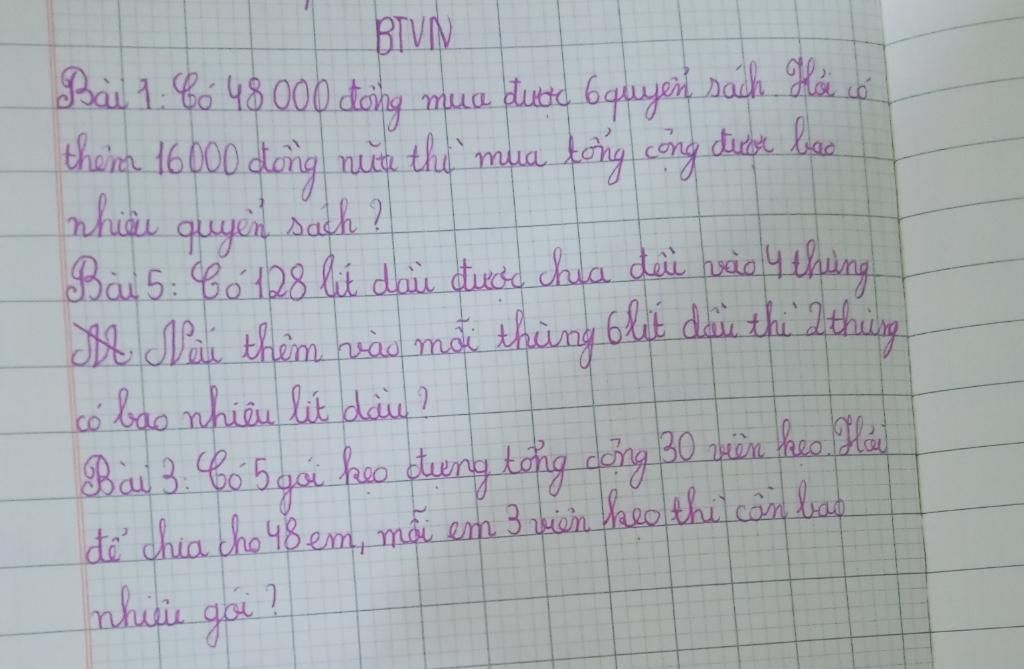 BTVN
Bài 1: Có 48 000 đồng mua được 6 quyển sách. Hỏi có
thêm 16000 đồng nữa thì mua tổng cộng được bao
nhiêu quyển sách?
Bài 5: Có 128 lít dầu được chia đều vào 4 thùng
Nếu thêm vào mỗi thùng 6 lít dầu thì 2 thùng
có bao nhiêu lít dầu?
Bài 3: Có 5 gói kẹo đựng tổng cộng 30 viên kẹo. Hỏi
để chia cho 48 em, mỗi em 3 viên kẹo thì cần bao
nhiêu gói?